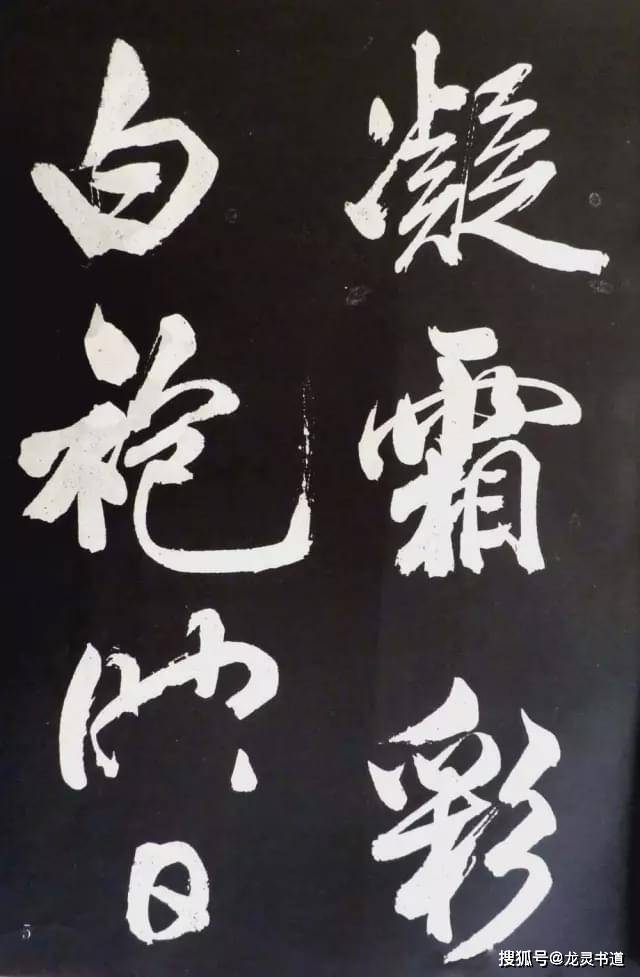 凝霜彩
白袍映日
5
搜狐号@龙灵书道